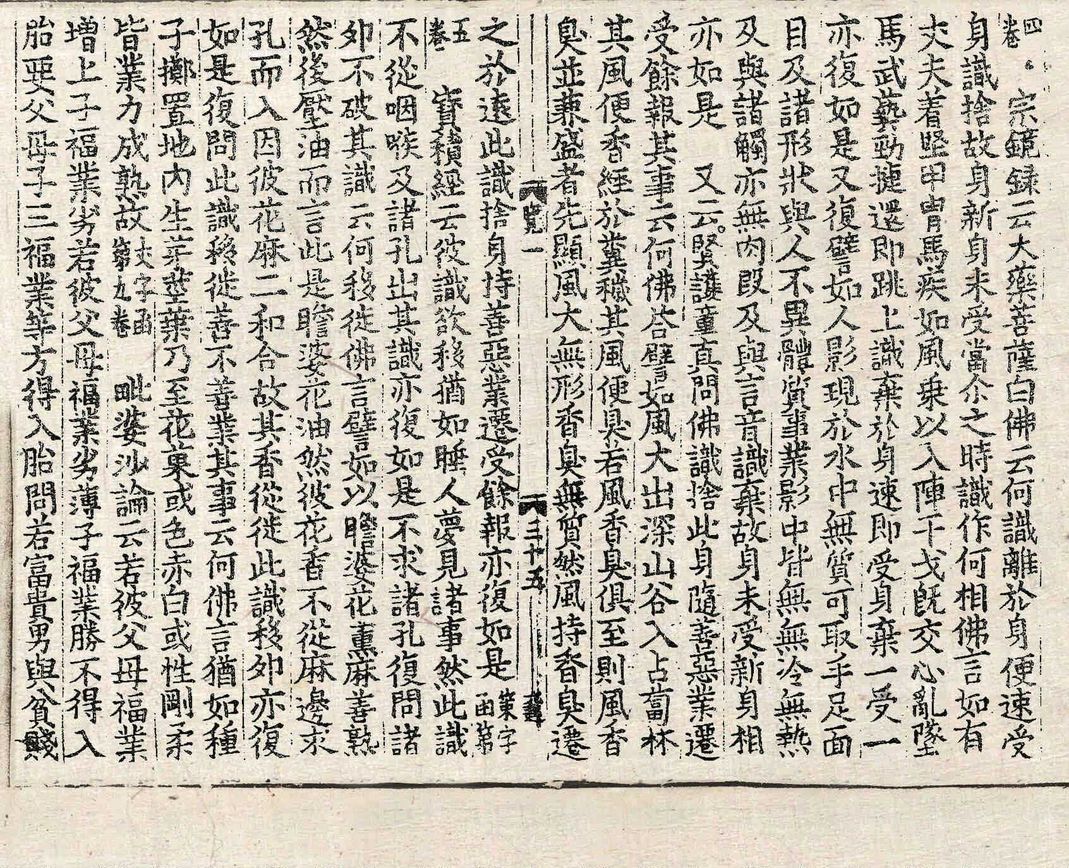 四卷　宗鏡録云大藥菩薩白佛云何識離於身便速受
身識捨故身新身未受當尒之時識作何相佛言如有
丈夫着堅甲冑馬疾如風乗以入陣干戈旣交心亂墜
馬武藝勁揵還即跳上識棄於身速即受身棄一受一
亦復如是又復譬如人影現於水中無質可取手足面
目及諸形狀與人不異體質事業影中皆無無冷無熱
及與諸觸亦無肉段及與言音識棄故身未受新身相
亦如是　又云賢護童真問佛識捨此身隨善惡業遷
受餘報其事云何佛荅譬如風大出深山谷入占蔔林
其風便香經於糞穢其風便臭若風香臭俱至則風香
臭並兼盛者先顯風大無形香臭無質然風持香臭遷
覽一　三十五
之於遠此識捨身持善惡業遷受餘報亦復如是
五卷　寶積經云彼識欲移猶如睡人夢見諸事然此識
不從咽喉及諸孔出其識亦復如是不求諸孔復問諸
夘不破其識云何移徙佛言譬如以瞻婆花熏麻善熟
然後壓油而言此是瞻婆花油然彼花香不從麻邊求
孔而入因彼花麻二和合故其香從徙此識移夘亦復
如是復問此識移徙善不善業其事云何佛言猶如種
子擲置地內生芽莖葉乃至花菓或色赤白或性剛柔
皆業力成熟故　毗婆沙論云若彼父母福業
増上子福業劣若彼父母福業劣薄子福業勝不得入
胎要父母子三福業等方得入胎問若富貴男與貧賤